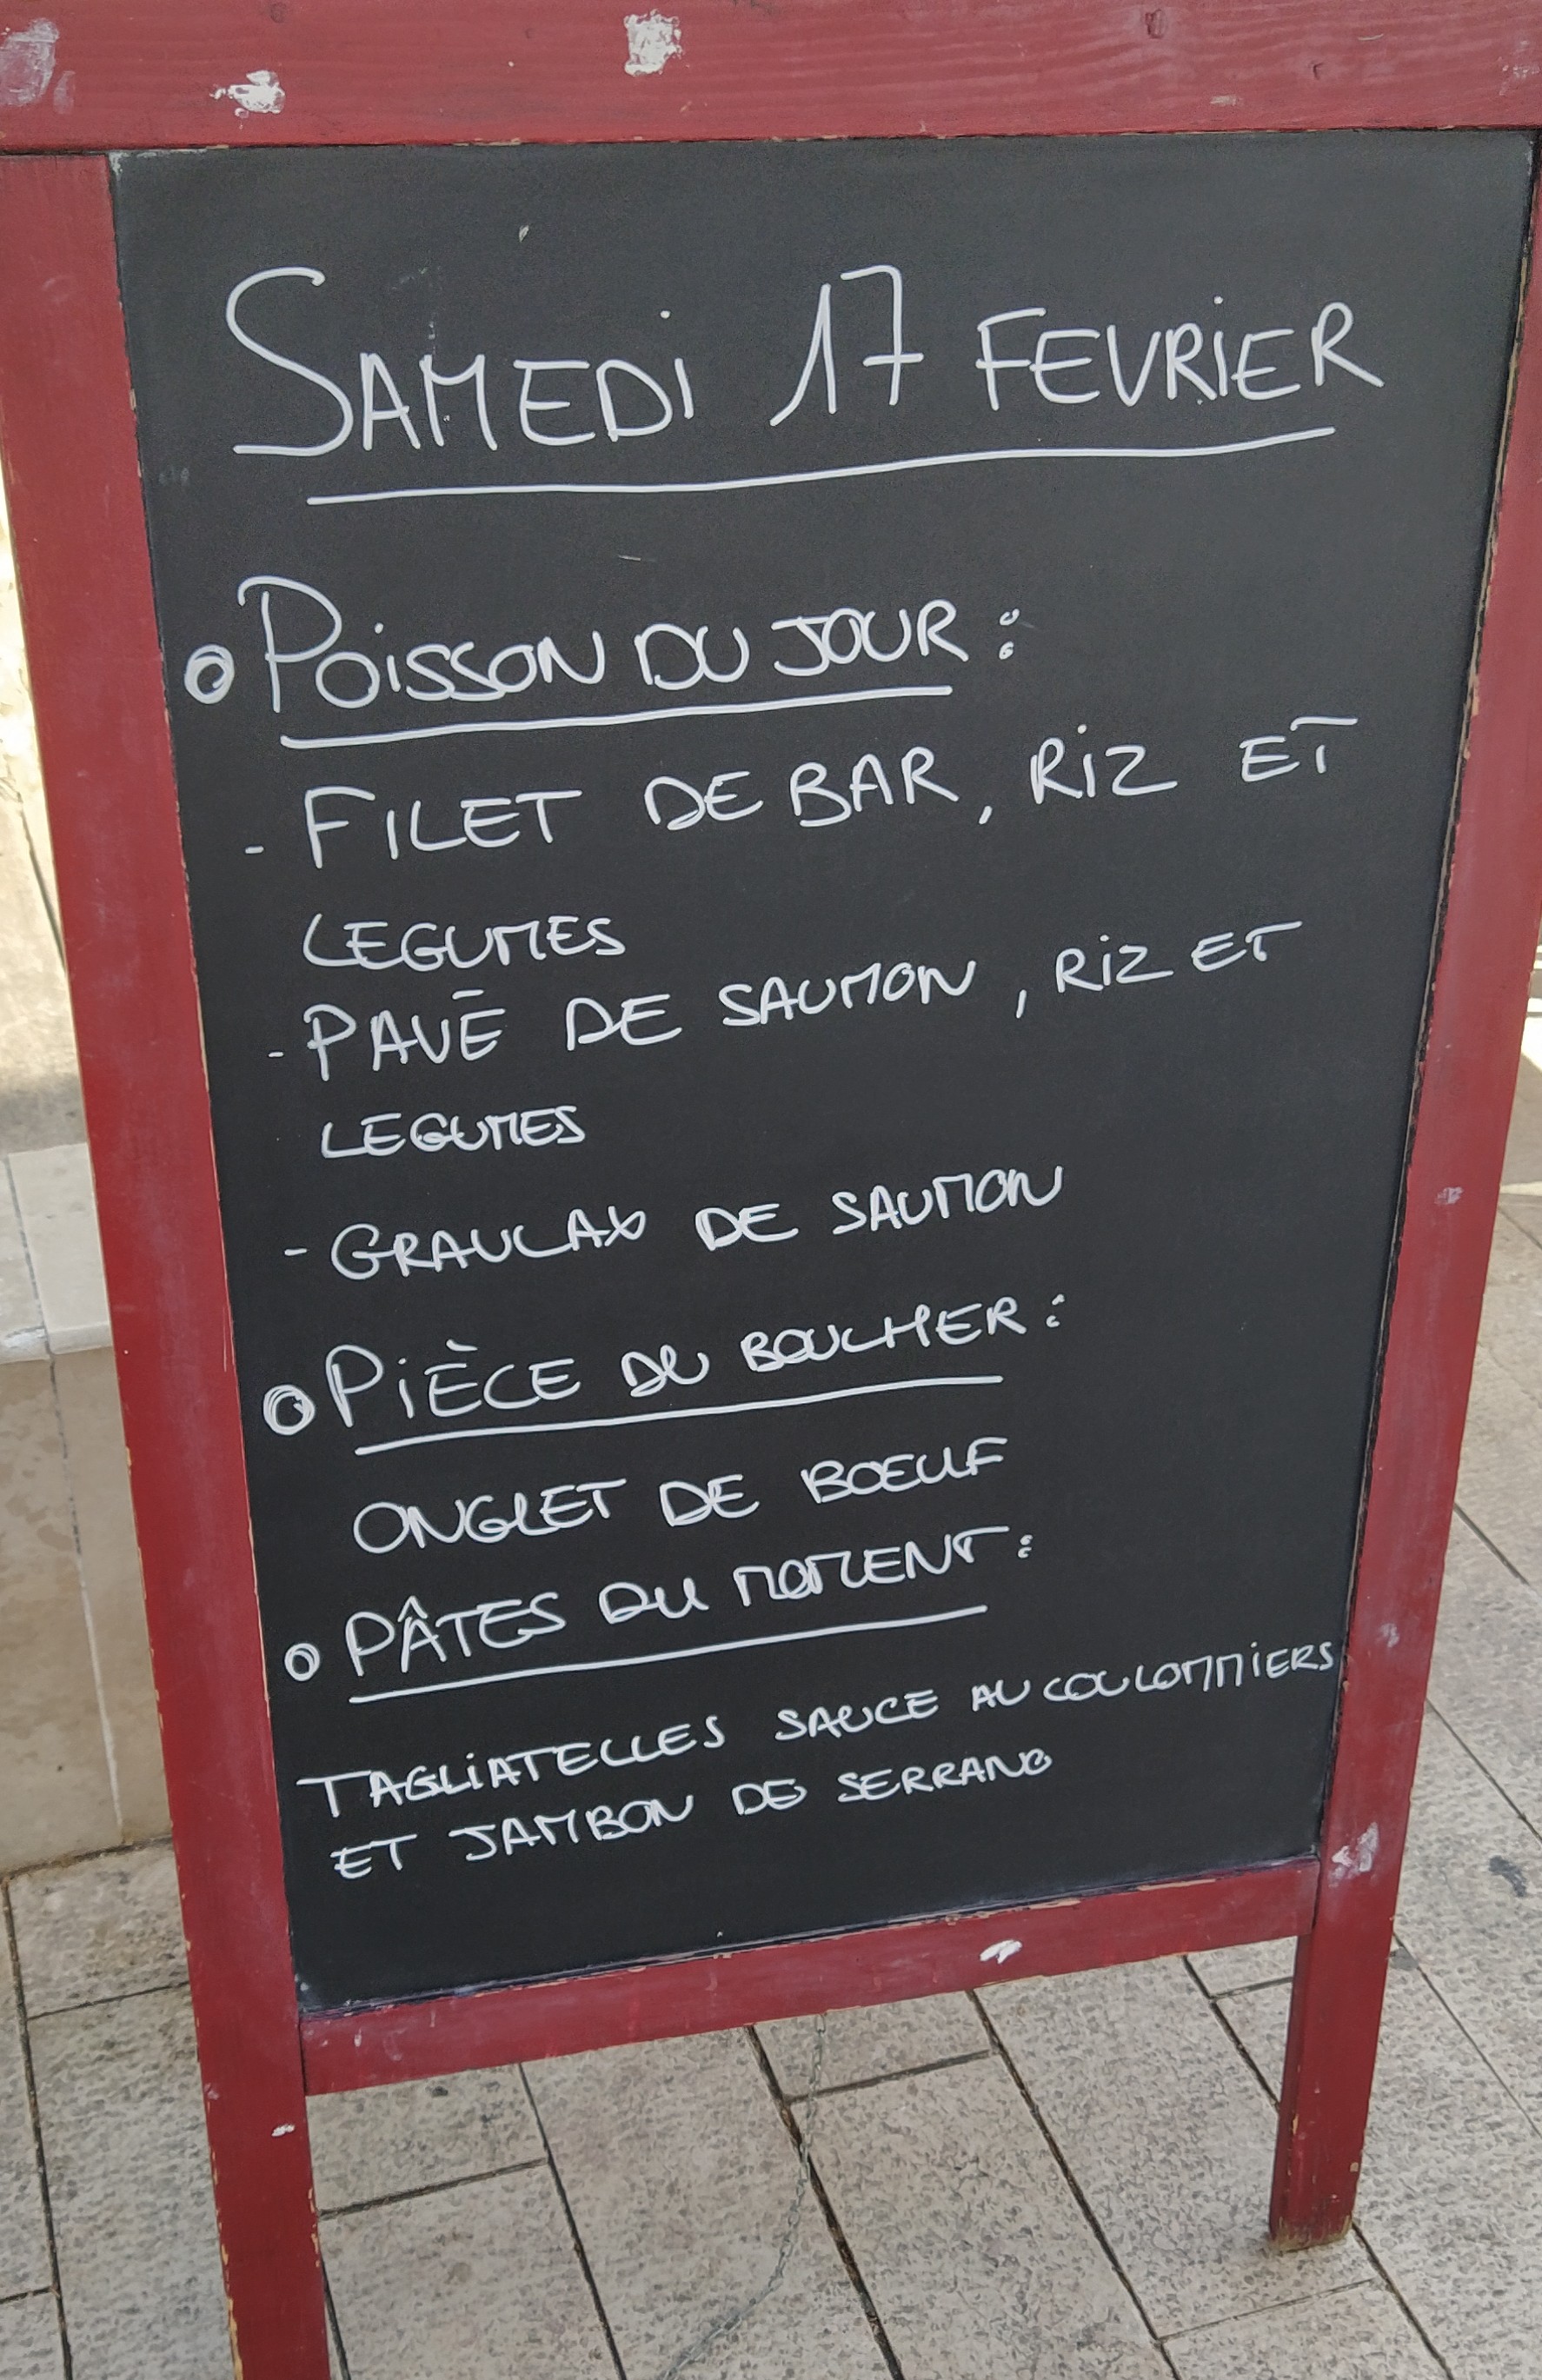 SAMEDI 17 FEVRIER
• POISSON DU JOUR :
- FILET DE BAR, RIZ ET
LEGUMES
- PAVÉ DE SAUMON, RIZ ET
LEGUMES
- GRAULAX DE SAUMON
• PIÈCE DU BOUCHER :
ONGLET DE BOEUF
• PÂTES DU MOMENT :
TAGLIATELLES SAUCE AU COULOMMIERS
ET JAMBON DE SERRANO